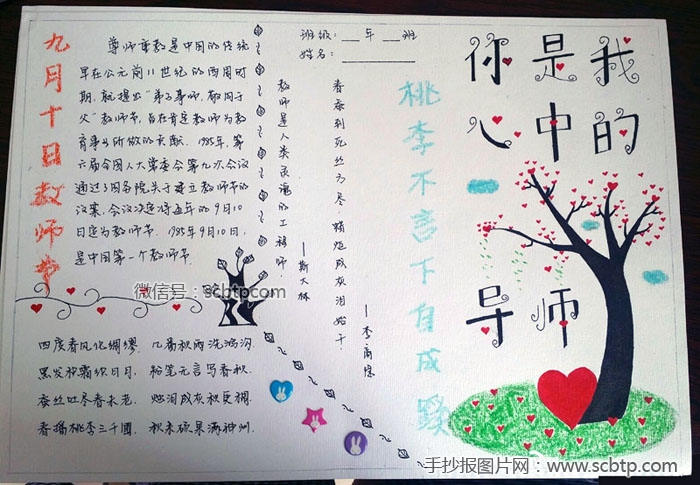 九月十日教师节
尊师重教是中国的传统
早在公元前11世纪的西周时
期,就提出"弟子事师,敬同于
父"教师节,旨在肯定教师为教
育事业所做的贡献.1985年,第
六届全国人大常委会第九次会议
通过了国务院关于建立教师节的
议案,会议决定将每年的9月10
日定为教师节.1985年9月10日,
是中国第一个教师节.
教师是人类灵魂的工程师.
——斯大林
班级:__年__班
姓名:
春蚕到死丝方尽,蜡炬成灰泪始干.
——李商隐
桃李不言下自成蹊
你是我
心中的
导师
微信号:scbtpcom
四度春风化绸缪,几番秋雨洗鸿沟.
黑发积霜织日月,粉笔无言写春秋.
蚕丝吐尽春未老,烛泪成灰秋更稠.
春播桃李三千圃,秋来硕果满神州.
手抄报图片网:www.scbtp.com